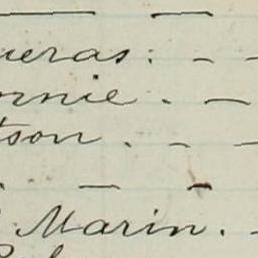 ueras: - -
ornie. -
tson. - -
- -
Marin. -